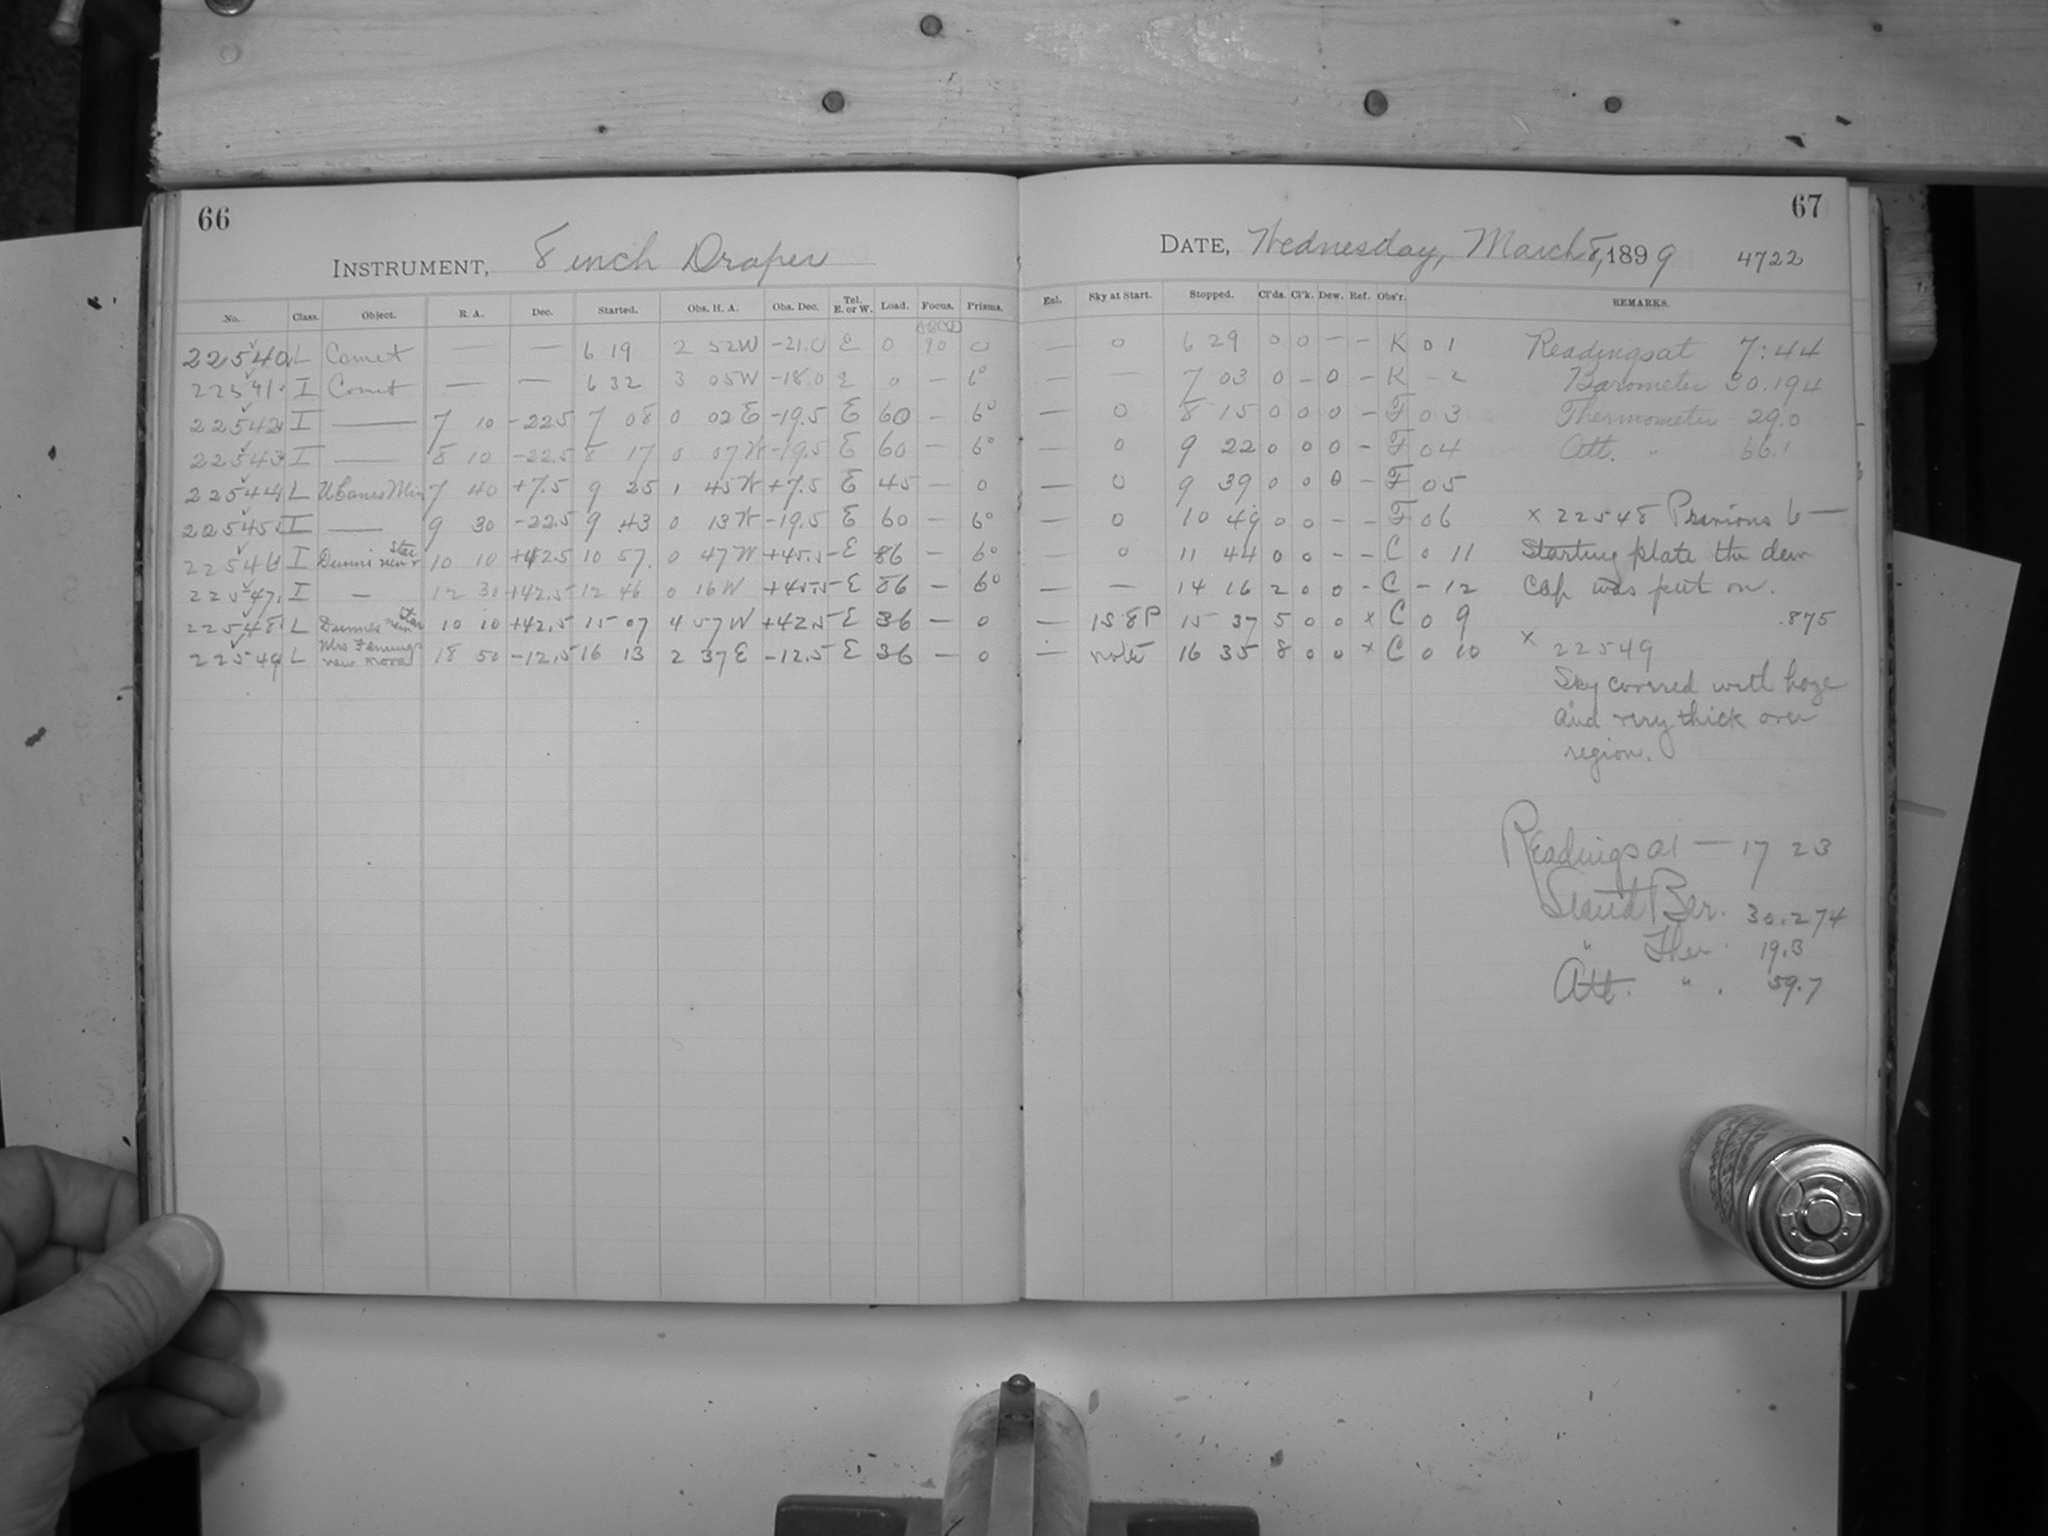 66
INSTRUMENT, 8 inch Draper
No. Class. Object. R. A. Dec. Started. Obs. H. A. Obs. Dec. Tel. E. or W. Load. Focus. Prisms.
22540 L Comet — — 6 19 2 52W -21.0 E 0 90 0
22541 I Comet — — 6 32 3 05W -18.0 E 0 — 6°
22542 I — 7 10 -22.5 7 08 0 02 E -19.5 E 60 — 6°
22543 I — 8 10 -22.5 8 17 0 07 W -19.5 E 60 — 6°
22544 L U Canis Min 7 40 +7.5 9 25 1 45 W +7.5 E 45 — 0
22545 I — 9 30 -22.5 9 43 0 13 W -19.5 E 60 — 6°
22546 I new star 10 10 +42.5 10 57 0 47 W +45.5 E 86 — 6°
22547 I — 12 30 +42.5 12 46 0 16 W +45.5 E 86 — 6°
22548 L new star 10 10 +42.5 15 07 4 57 W +42.5 E 36 — 0
22549 L Mrs Flemings new nova 18 50 -12.5 16 13 2 37 E -12.5 E 36 — 0
67
DATE, Wednesday, March 8, 1899 4722
Enl. Sky at Start. Stopped. Cl'ds. Cl'k. Dew. Ref. Obs'r. REMARKS.
— 0 6 29 0 0 — — K 0 1 Readings at 7:44
— — 7 03 0 — 0 — K — 2 Barometer 30.194
— 0 8 15 0 0 0 — F 0 3 Thermometer 29.0
— 0 9 22 0 0 0 — F 0 4 Att. " 66.1
— 0 9 39 0 0 0 — F 0 5
— 0 10 49 0 0 — — F 0 6 x 22548 Previous to —
— 0 11 44 0 0 — — C 0 11 Starting plate the dew
— — 14 16 2 0 0 — C — 12 Cap was put on.
— 1S 8P 15 37 5 0 0 x C 0 9 .875
— note 16 35 8 0 0 x C 0 10 x 22549
Sky covered with haze
and very thick over
region.
Readings at — 17 23
Stand Bar. 30.274
" Ther. 19.3
Att. " . 59.7